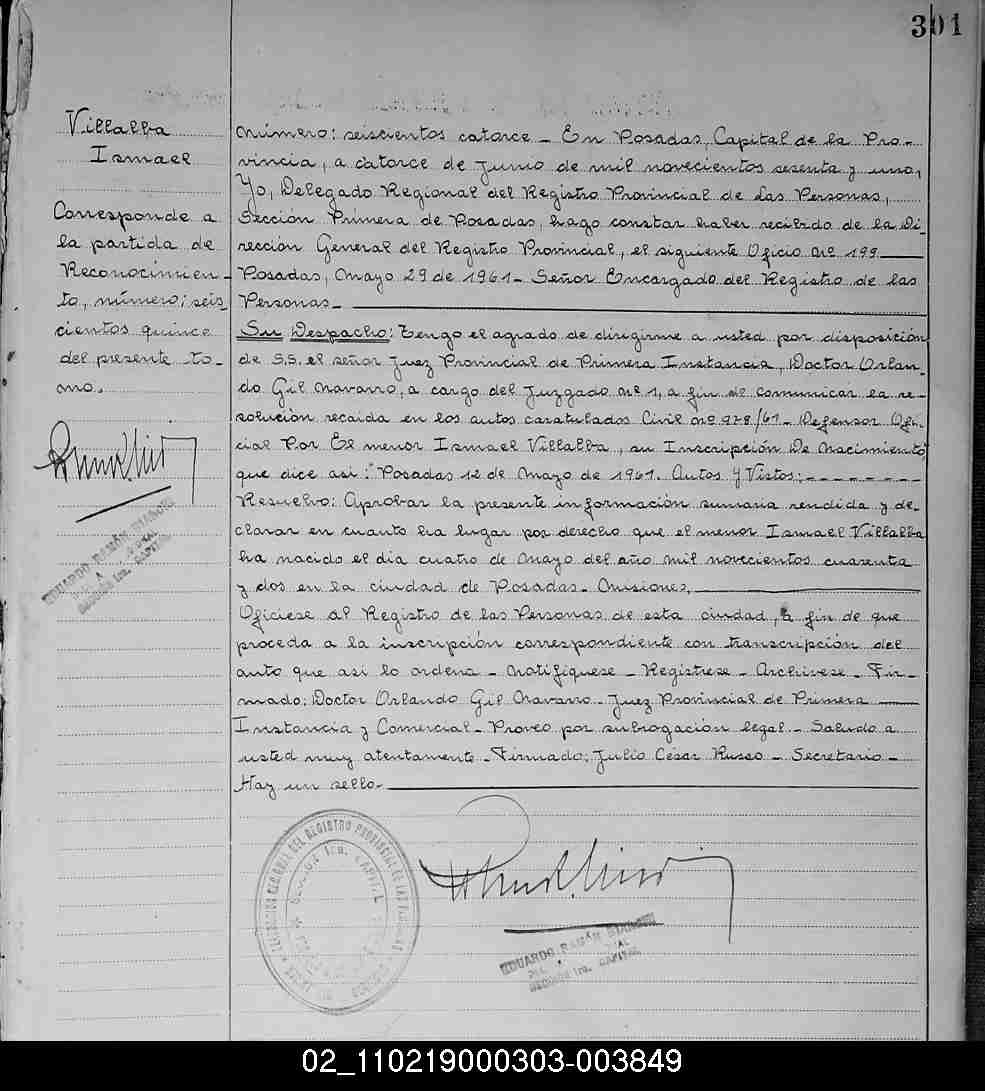 301
Villalba
Ismael
Corresponde a
la partida de
Reconocimien-
to, número: seis
cientos quince
del presente to-
mo.
EDUARDO RAMÓN
Número: seiscientos catorce - En Posadas, Capital de la Pro-
vincia, a catorce de Junio de mil novecientos sesenta y uno,
Yo, Delegado Regional del Registro Provincial de Las Personas,
Sección Primera de Posadas, hago constar haber recibido de la Di-
rección General del Registro Provincial, el siguiente Oficio Nº 199
Posadas, Mayo 29 de 1961 - Señor Encargado del Registro de las
Personas.-
Su Despacho: Tengo el agrado de dirigirme a usted por disposición
de S.S. el señor Juez Provincial de Primera Instancia, Doctor Orlan-
do Gil Navarro, a cargo del Juzgado Nº 1, a fin de comunicar la re-
solución recaída en los autos caratulados Civil Nº 928/61 - Defensor Ofi-
cial Por El menor Ismael Villalba, su Inscripción De Nacimiento,
que dice asi: "Posadas 12 de Mayo de 1961. Autos y Vistos: - - - - - - - -
Resuelvo: Aprobar la presente información sumaria rendida y de-
clarar en cuanto ha lugar por derecho que el menor Ismael Villalba
ha nacido el dia cuatro de Mayo del año mil novecientos cuarenta
y dos en la ciudad de Posadas - Misiones,
Ofíciese al Registro de las Personas de esta ciudad, a fin de que
proceda a la inscripción correspondiente con transcripción del
auto que asi lo ordena - Notifíquese - Registrese - Archivese - Fir-
mado: Doctor Orlando Gil Navarro - Juez Provincial de Primera
Instancia y Comercial - Proveo por subrogación legal - Saludo a
usted muy atentamente - Firmado: Julio César Russo - Secretario -
Hay un sello.-
DELEGACION REGIONAL DEL REGISTRO PROVINCIAL DE LAS PERSONAS
SECCION 1ra. CAPITAL
EDUARDO RAMÓN
SECCION 1ra. CAPITAL
02_110219000303-003849